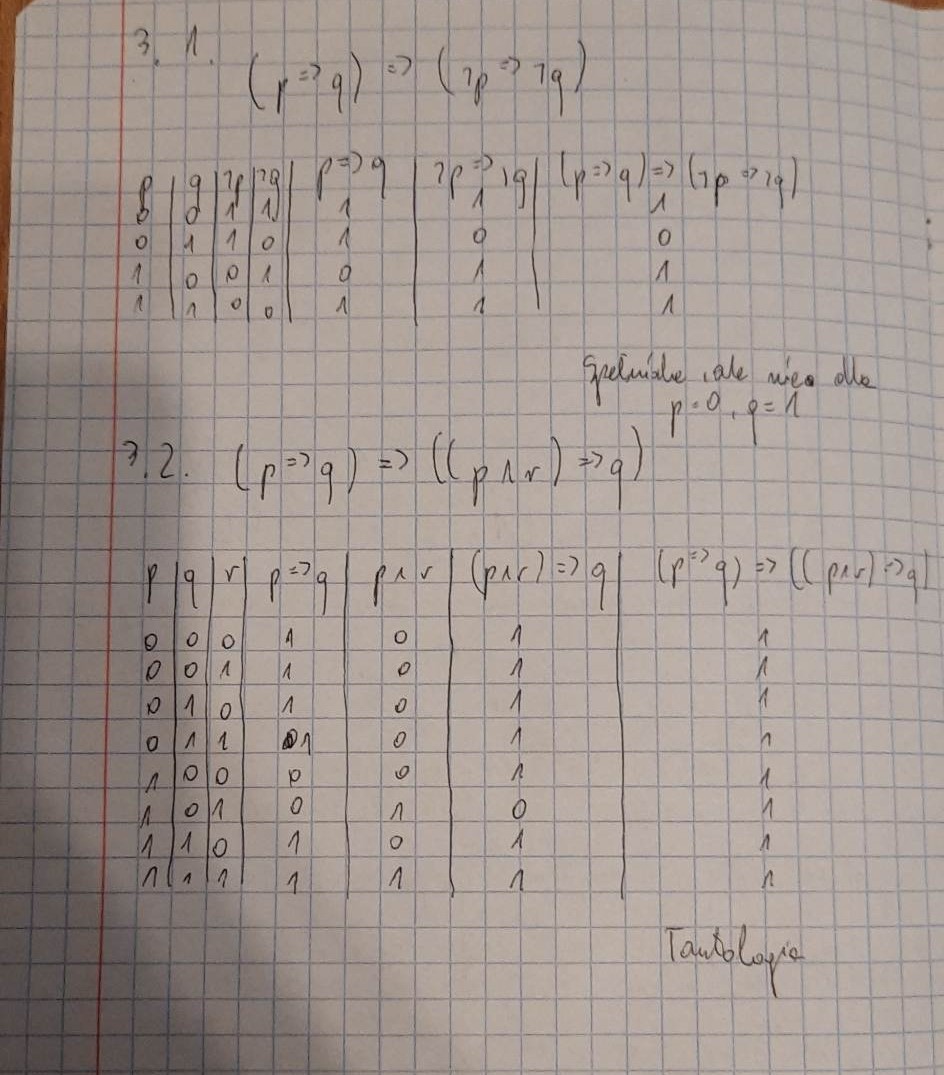 3. 1. (p => q) => (¬p => ¬q)
p | q | ¬p | ¬q | p => q | ¬p => ¬q | (p => q) => (¬p => ¬q)
0 | 0 | 1 | 1 | 1 | 1 | 1
0 | 1 | 1 | 0 | 1 | 0 | 0
1 | 0 | 0 | 1 | 0 | 1 | 1
1 | 1 | 0 | 0 | 1 | 1 | 1
ale nie dla
p=0, q=1
3.2. (p => q) => ((p ∧ r) => q)
p | q | r | p => q | p ∧ r | (p ∧ r) => q | (p => q) => ((p ∧ r) => q)
0 | 0 | 0 | 1 | 0 | 1 | 1
0 | 0 | 1 | 1 | 0 | 1 | 1
0 | 1 | 0 | 1 | 0 | 1 | 1
0 | 1 | 1 | 1 | 0 | 1 | 1
1 | 0 | 0 | 0 | 0 | 1 | 1
1 | 0 | 1 | 0 | 1 | 0 | 1
1 | 1 | 0 | 1 | 0 | 1 | 1
1 | 1 | 1 | 1 | 1 | 1 | 1
Tautologia